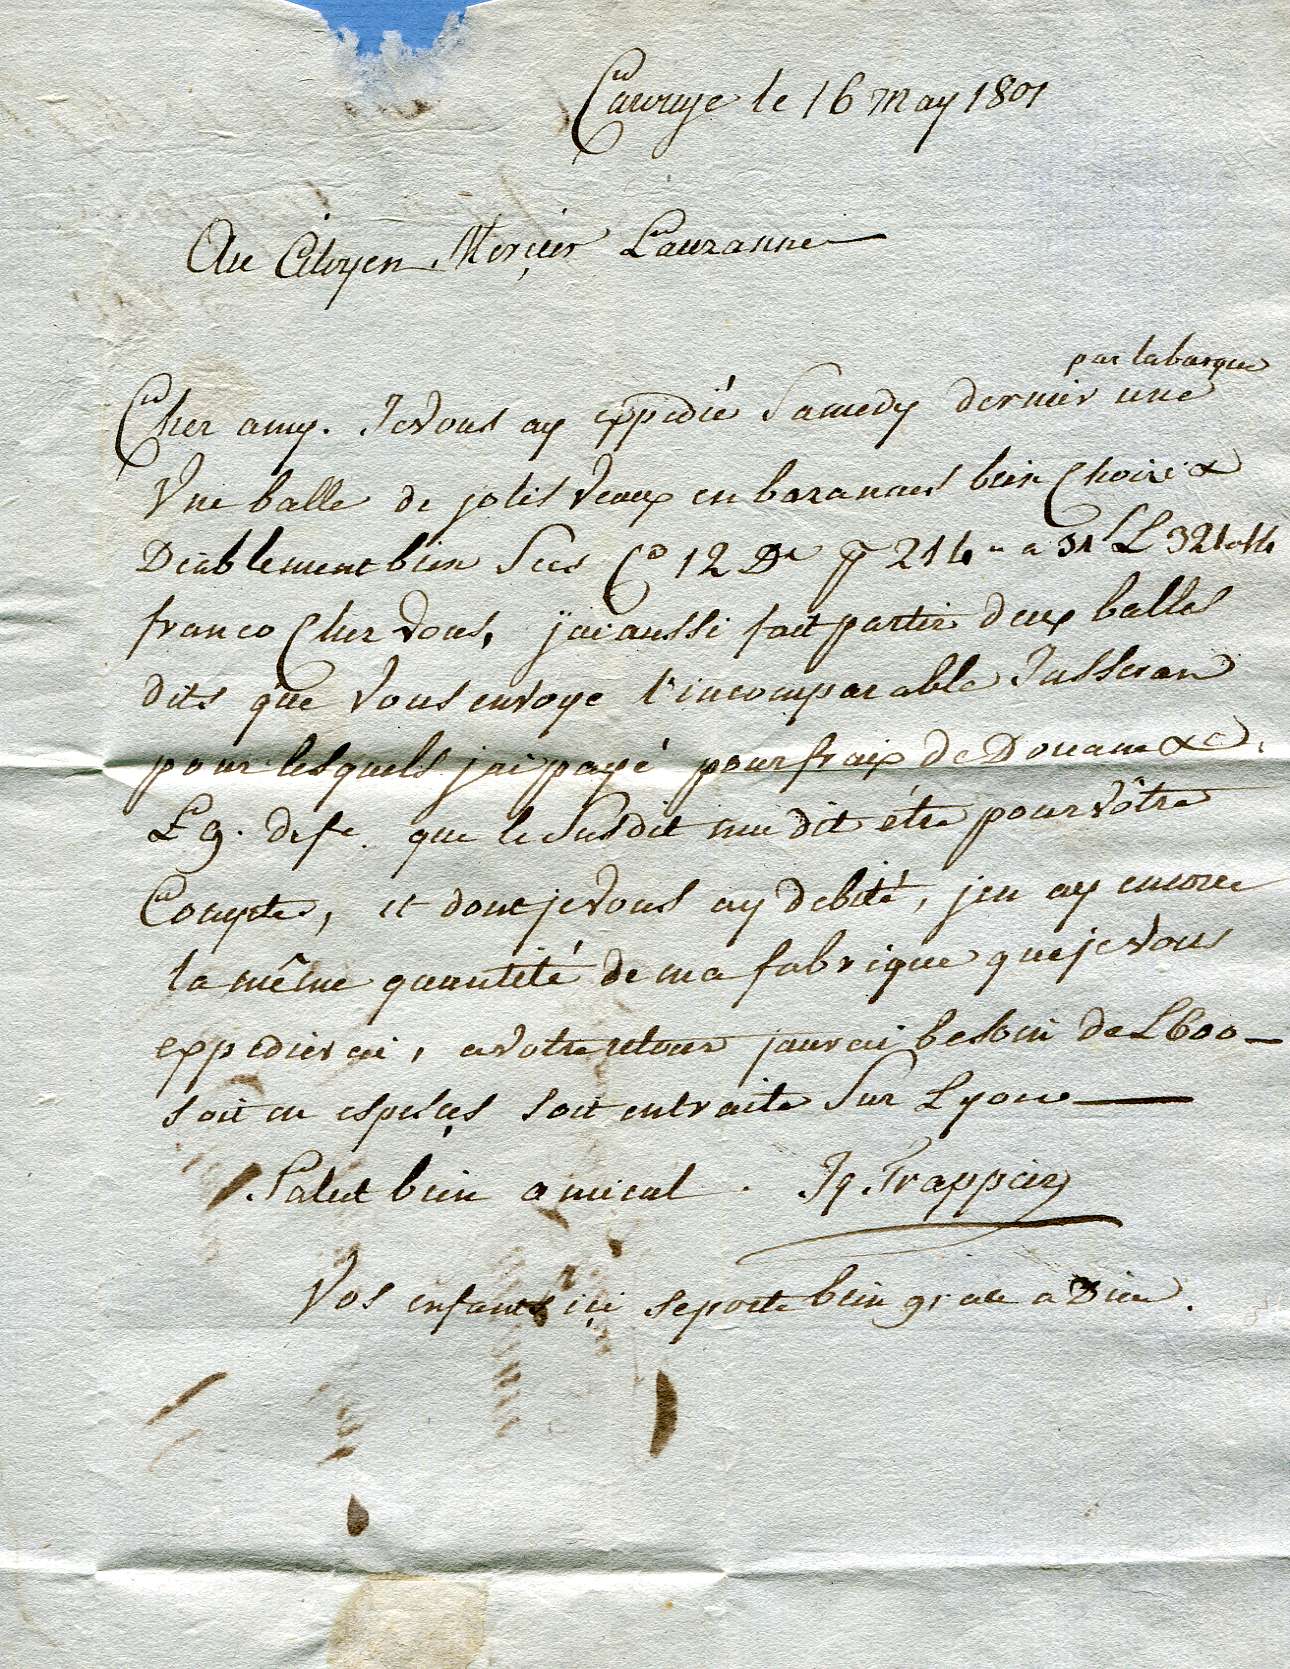 Carruge le 16 May 1801
Au Citoyen Merçier Lauzanne
par la barque
Cher amy. Je vous ay exppedié Samedy dernier une
Une balle de jolis Veaux en bazannes bien Choisi &
Diablement bien Secs Co 12 Dne 214 a 31 L 321
franco Cher Vous, j'ai aussi fait partir deux balles
dits que Vous envoye l'incomparable Jusseran
pour lesquels j'ai payé pour fraix de Douane &c.
L 9. de fce. que le Susdit me dit être pour Vôtre
Compte, et dont je Vous ay debité, jen ay encore
la même quantité de ma fabrique que je Vous
exppedierai, a votre retour j'aurai besoin de L 600 —
soit en espesçes soit en traite Sur Lyon —
Salut bien amical. Jq. Trappier
Vos enfants içi se porte bien grace a Dieu.